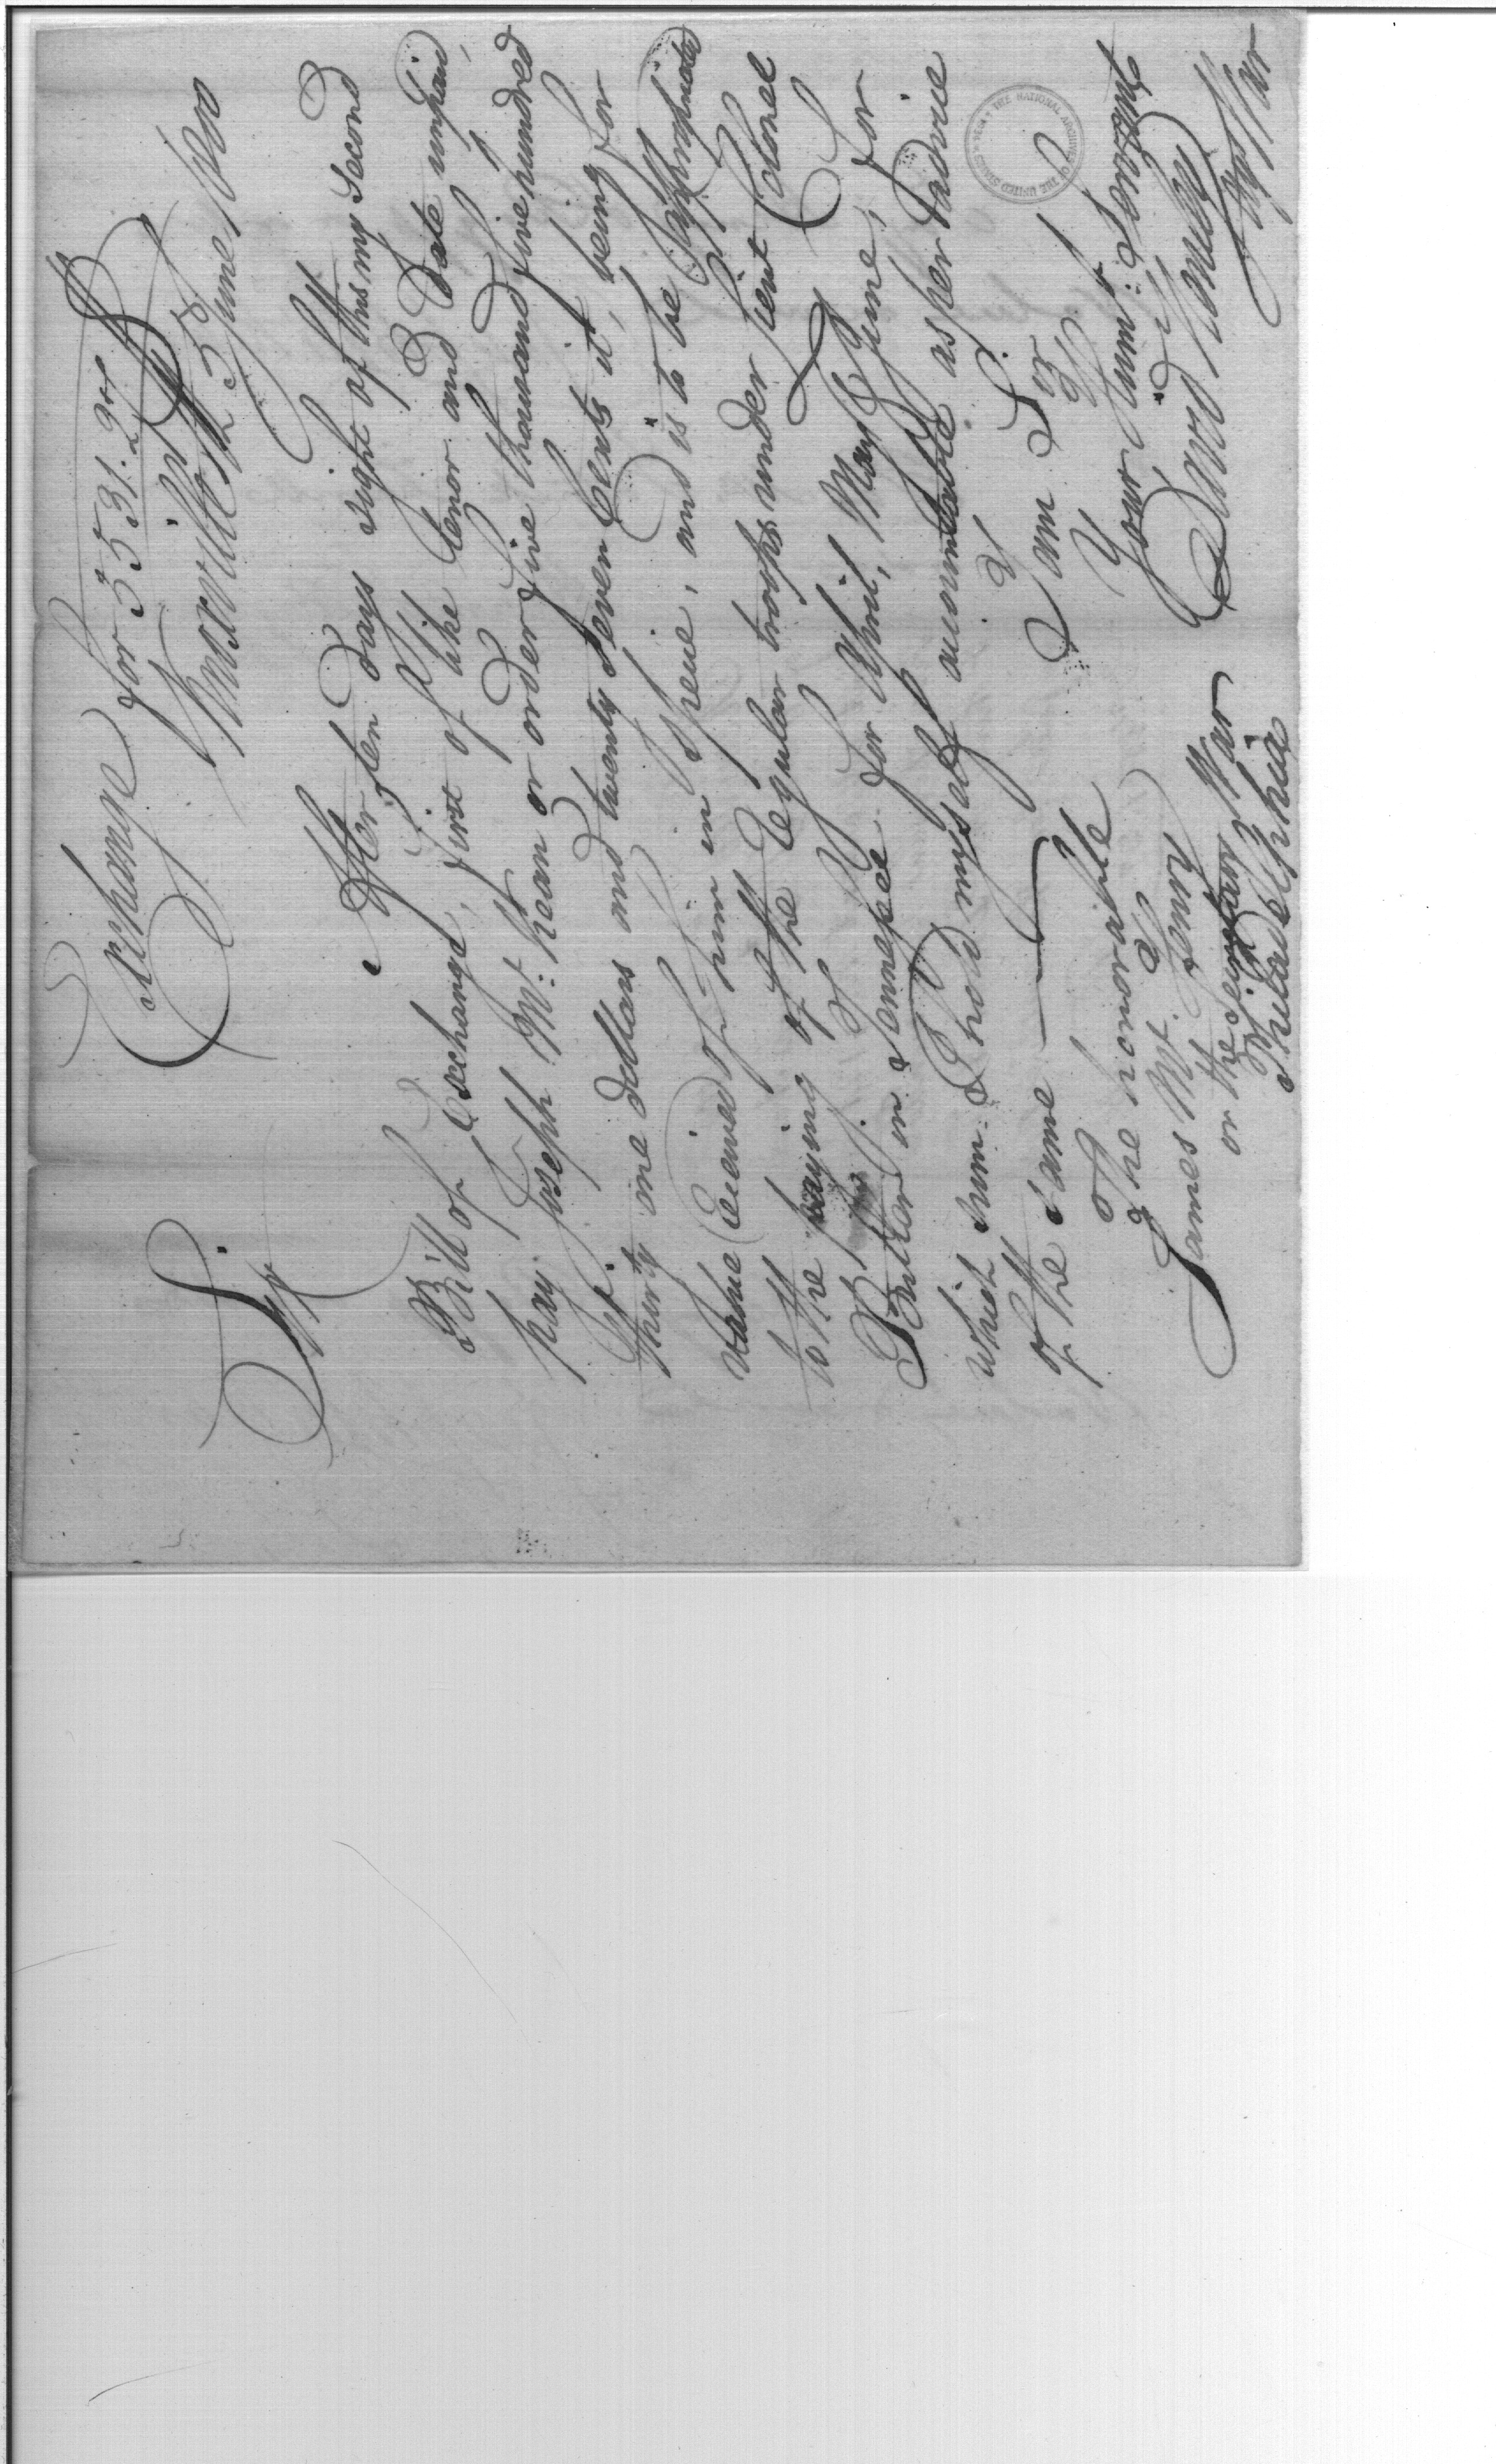 Exchange for 5531. 27
Knoxville 5th June 1800
Sir
After ten days sight of this my second
Bill of Exchange, first of like tenor and date unpaid,
pay Joseph Mc:Kean or order five thousand five hundred
& thirty one dollars and twenty seven Cents it, being for
value received of him in specie, and is to be appropriated
to the paying of the regular troops under Lieut Colonel
Butler in Tennessee for April, May & June, for
which sum I hold myself accountable as per advice
of the same
I am Sir
Your Hum: Servant
David Henley
Agt War
The honorable
James Mc. Henry
or the Secretary War
Philadelphia
THE NATIONAL ARCHIVES OF THE UNITED STATES • 1934 •